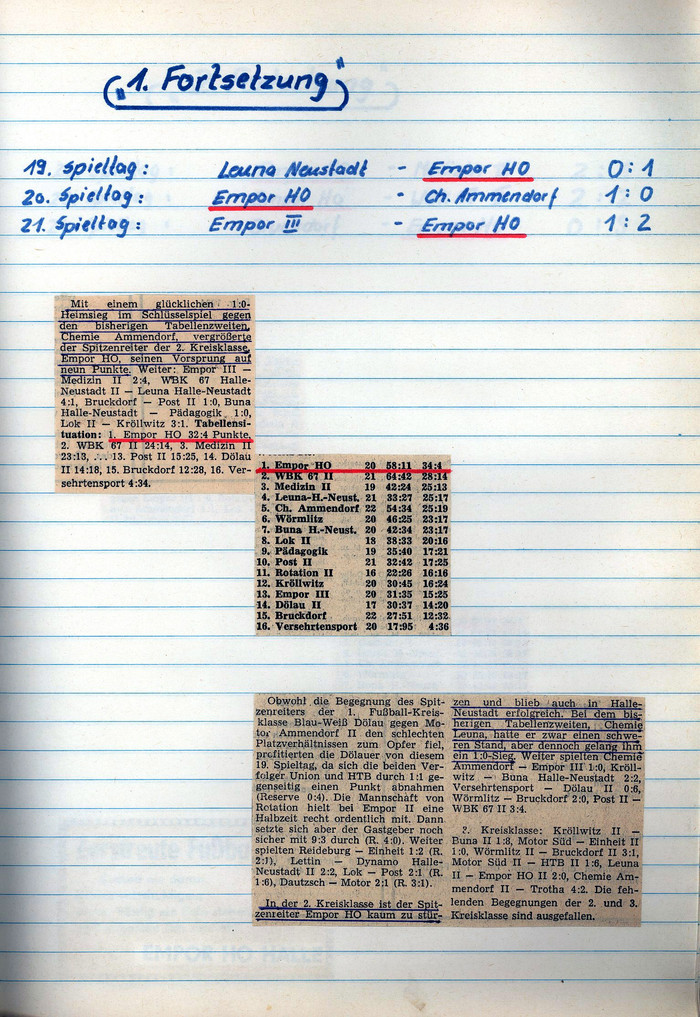 ("1. Fortsetzung")
19. Spieltag: Leuna Neustadt - Empor HO 0:1
20. Spieltag: Empor HO - Ch. Ammendorf 1:0
21. Spieltag: Empor III - Empor HO 1:2
Mit einem glücklichen 1:0-
Heimsieg im Schlüsselspiel gegen
den bisherigen Tabellenzweiten,
Chemie Ammendorf, vergrößerte
der Spitzenreiter der 2. Kreisklasse,
Empor HO, seinen Vorsprung auf
neun Punkte. Weiter: Empor III —
Medizin II 2:4, WBK 67 Halle-
Neustadt II — Leuna Halle-Neustadt
4:1, Bruckdorf — Post II 1:0, Buna
Halle-Neustadt — Pädagogik 1:0,
Lok II — Kröllwitz 3:1. Tabellensi-
tuation: 1. Empor HO 32:4 Punkte,
2. WBK 67 II 24:14, 3. Medizin II
23:13, ... 13. Post II 15:25, 14. Dölau
II 14:18, 15. Bruckdorf 12:28, 16. Ver-
sehrtensport 4:34.
1. Empor HO 20 58:11 34:4
2. WBK 67 II 21 64:42 28:14
3. Medizin II 19 42:24 25:13
4. Leuna-H.-Neust. 21 33:27 25:17
5. Ch. Ammendorf 22 54:34 25:19
6. Wörmlitz 20 46:25 23:17
7. Buna H.-Neust. 20 42:34 23:17
8. Lok II 18 38:33 20:16
9. Pädagogik 19 35:40 17:21
10. Post II 21 32:42 17:25
11. Rotation II 16 22:26 16:16
12. Kröllwitz 20 30:45 16:24
13. Empor III 20 31:35 15:25
14. Dölau II 17 30:37 14:20
15. Bruckdorf 22 27:51 12:32
16. Versehrtensport 20 17:95 4:36
Obwohl die Begegnung des Spit-
zenreiters der 1. Fußball-Kreis-
klasse Blau-Weiß Dölau gegen Mo-
tor Ammendorf II den schlechten
Platzverhältnissen zum Opfer fiel,
profitierten die Dölauer von diesem
19. Spieltag, da sich die beiden Ver-
folger Union und HTB durch 1:1 ge-
genseitig einen Punkt abnahmen
(Reserve 0:4). Die Mannschaft von
Rotation hielt bei Empor II eine
Halbzeit recht ordentlich mit. Dann
setzte sich aber der Gastgeber noch
sicher mit 9:3 durch (R. 4:0). Weiter
spielten Reideburg — Einheit 1:2 (R.
2:1), Lettin — Dynamo Halle-
Neustadt II 2:2, Lok — Post 2:1 (R.
1:6), Dautzsch — Motor 2:1 (R. 3:1).
In der 2. Kreisklasse ist der Spit-
zenreiter Empor HO kaum zu stür-
zen und blieb auch in Halle-
Neustadt erfolgreich. Bei dem bis-
herigen Tabellenzweiten, Chemie
Leuna, hatte er zwar einen schwe-
ren Stand, aber dennoch gelang ihm
ein 1:0-Sieg. Weiter spielten Chemie
Ammendorf — Empor III 1:0, Kröll-
witz — Buna Halle-Neustadt 2:2,
Versehrtensport — Dölau II 0:6,
Wörmlitz — Bruckdorf 2:0, Post II —
WBK 67 II 3:4.
2. Kreisklasse: Kröllwitz II —
Buna II 1:8, Motor Süd — Einheit II
1:0, Wörmlitz II — Bruckdorf II 3:1,
Motor Süd II — HTB II 1:6, Leuna
II — Empor HO II 2:0, Chemie Am-
mendorf II — Trotha 4:2. Die feh-
lenden Begegnungen der 2. und 3.
Kreisklasse sind ausgefallen.